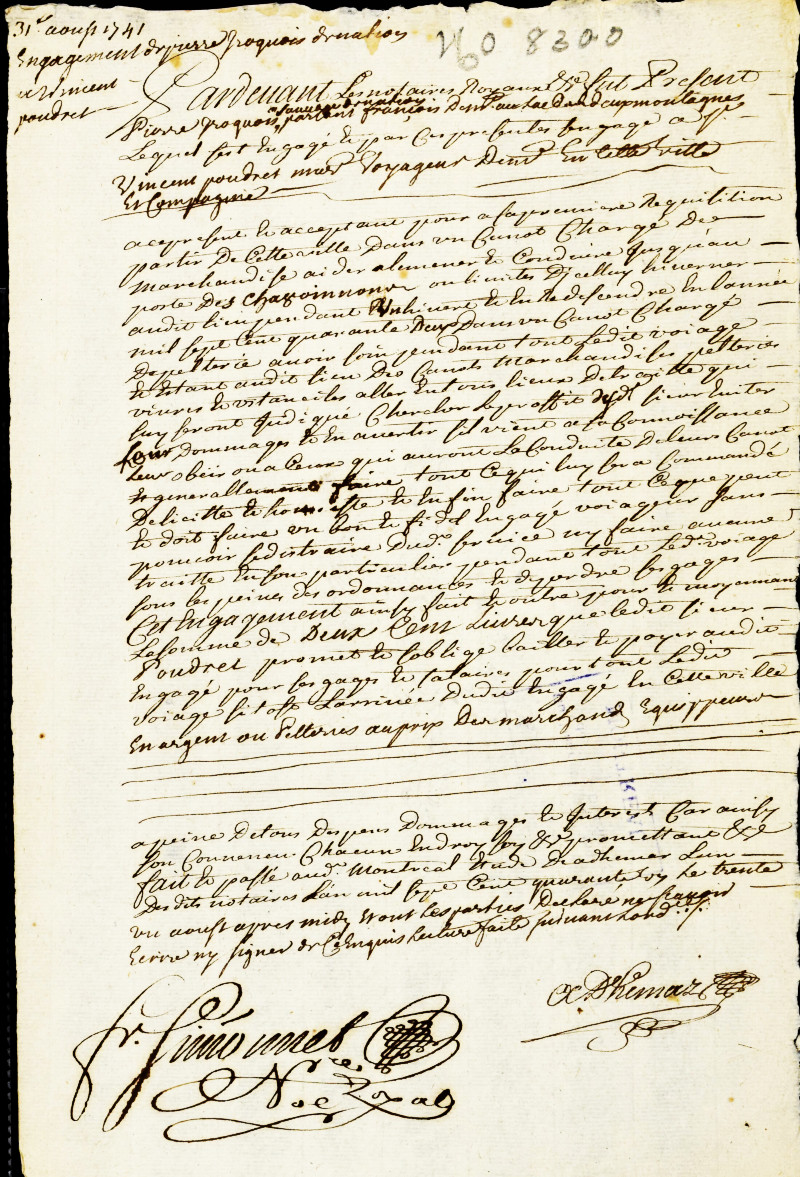 31e aoust 1741
No 8300
Engagement de pierre Iroquois de nation
a Vincent
poudret
Pardevant Les notaires Royaux &c fut Present
Pierre Iroquois sauvage de nation parlant francois Demt au Lac des Deux montagnes
Lequel s'est Engagé et par ces presentes Engage a Sr
Vincent poudret mard Voyageur Demt En cette ville
Et Compagnie
a ce present et acceptant pour a sa premiere Requisition
partir De Cette ville Dans un Canot Chargé De
Marchandise aider a le mener et Conduire Jusqu'au
poste Des Chaouinnons ou limites D'icelluy hiverner
audit lieu pendant Un hivert et En Redescendre En Lannée
mil sept Cent quarante Deux Dans un Canot Chargé
De pelterie avoir soin pendant tout Ledit voiage
et Estant audit lieu Des Canots Marchandises pelteries
vivres et Ustanciles aller En tous lieux De traitte qui
luy seront Indiqué Chercher Le proffit dudt sieur Eviter
Leur Dommages et En avertir s'il vient a sa Connoissance
Leur obeir ou a Ceux qui auront La Conduite De leurs Canot
et generallement faire tout Ce qui luy sera Commandé
De licitte et honneste et Enfin faire tout Ce que peut
et doit faire un bon et fidel Engagé voiageur sans
pouvoir se distraire Dudt service ny faire aucune
traitte En son particulier pendant tout Ledt voiage
sous les peines des ordonnances et de perdre ses gages
Cet Engagement ainsy fait et outre pour et moyennant
La somme de Deux Cent Livres que ledit sieur
Poudret promet et s'oblige bailler et payer audit
Engagé pour ses gages et salaires pour tout Ledit
voiage sitost Larrivée Dudit Engagé En Cette ville
En argent ou Pelteries au prix Des marchands Equippeurs
a peine De tous Despens Dommages et Interest Car ainsy
son Convenu. Chacun Endroy soy &c promettant &c
fait et passé audt Montreal Etude D'adhemar L'un
Des dits notaires L'an mil sept Cent quarante un Le trente
un aoust apres midy Et ont Les parties Declaré ne sçavoir
Ecrire ny signer de Ce Enquis Lecture faite suivant Lord.
Adhemar
fr. Simonnet
Nore Royal